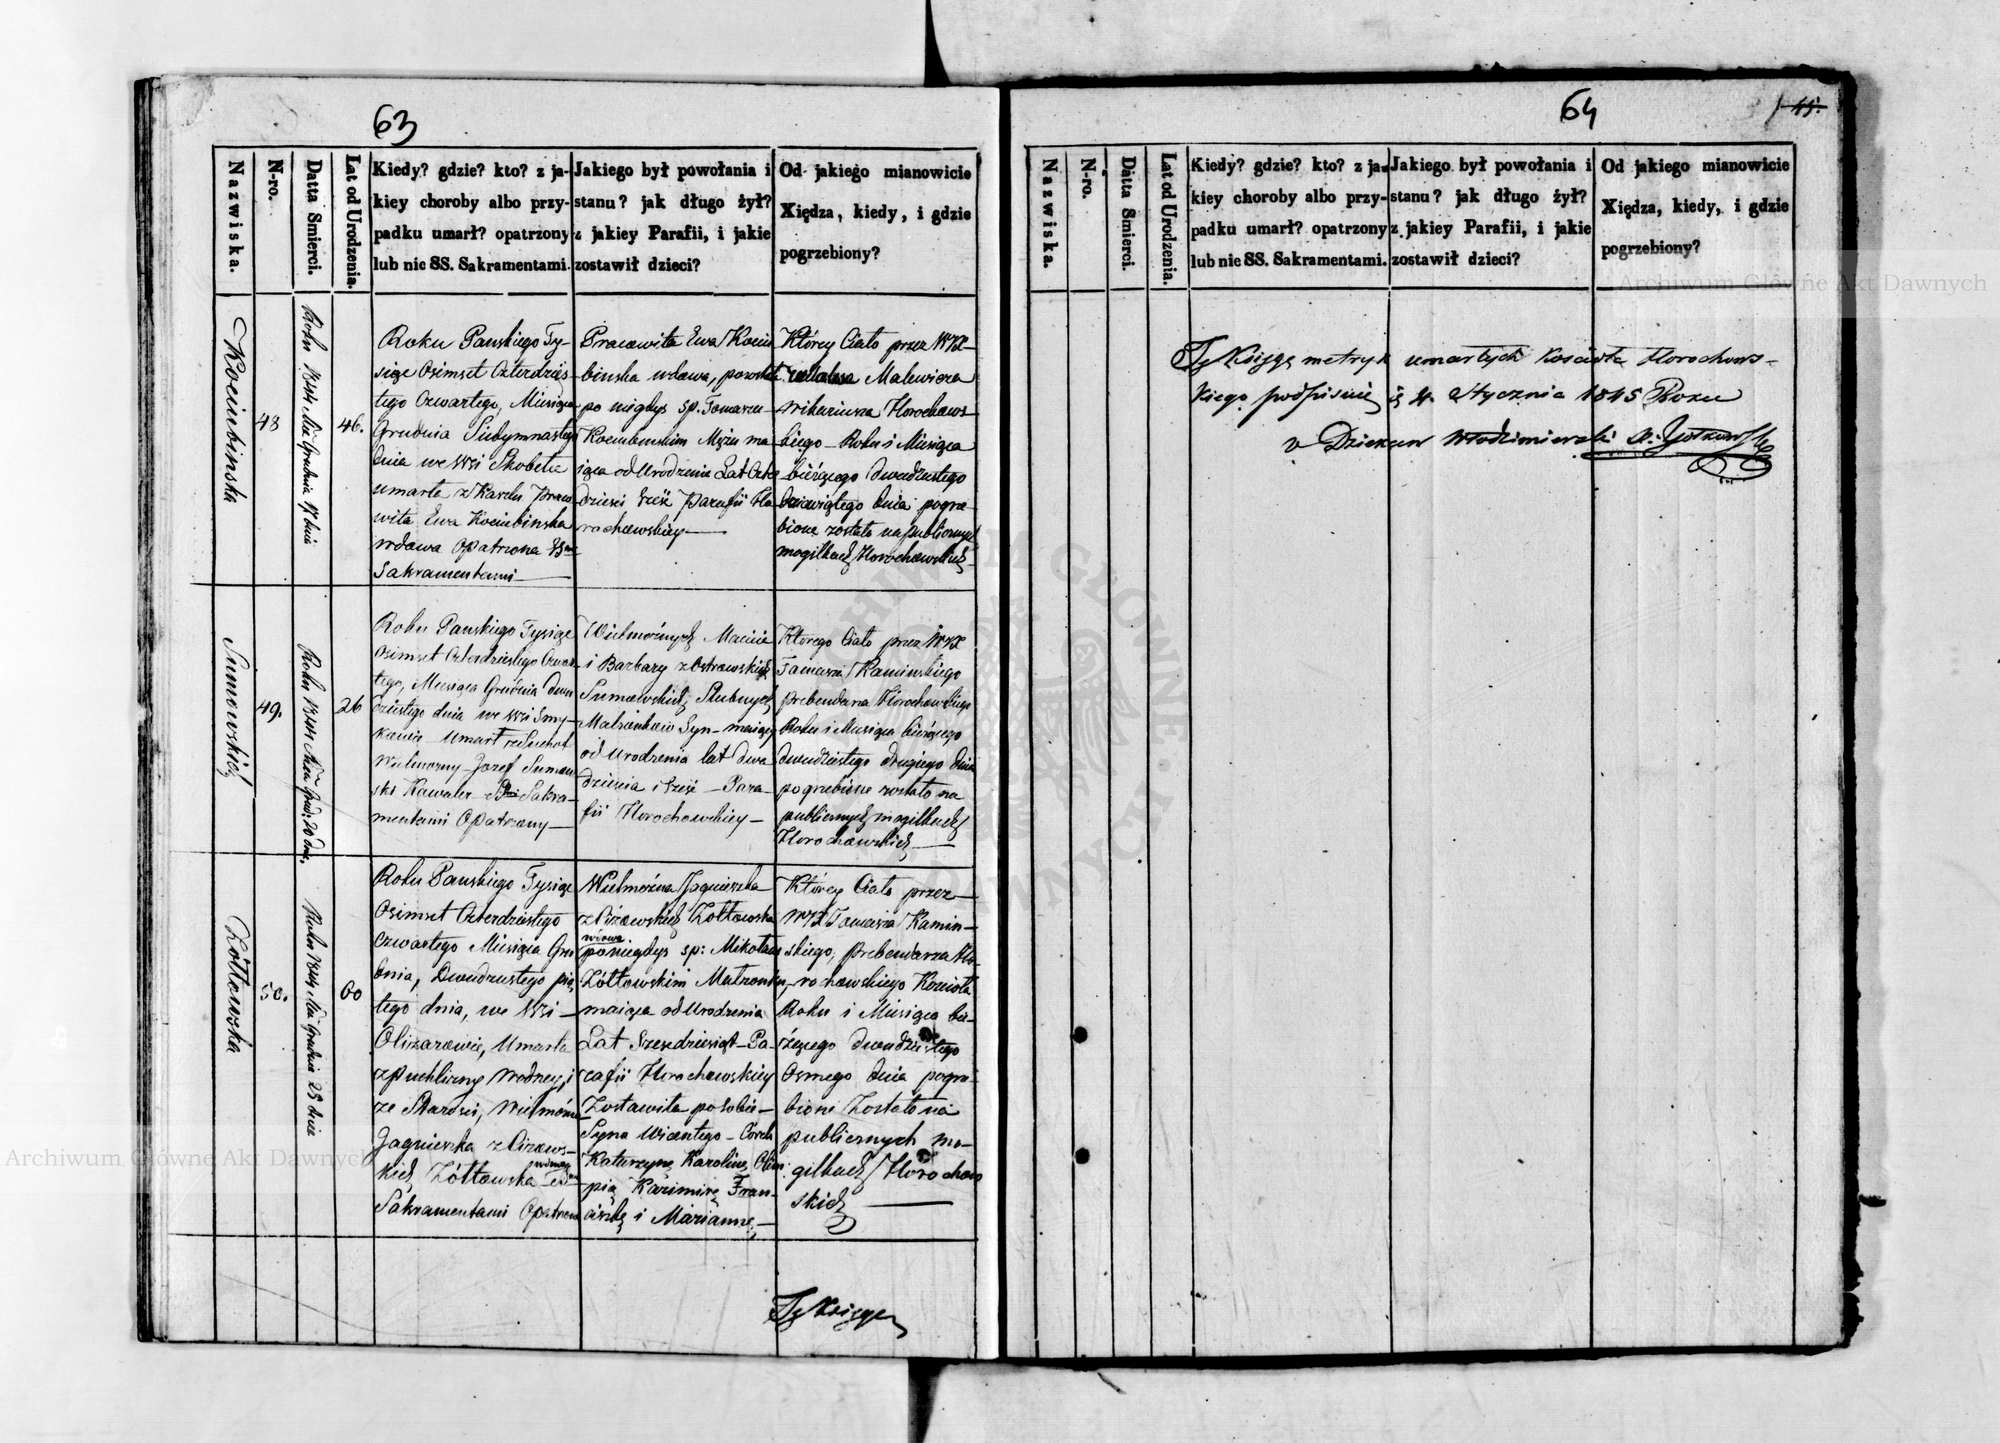 63
Nazwiska.
N-ro.
Datta Smierci.
Lat od Urodzenia.
Kiedy? gdzie? kto? z ja-
kiey choroby albo przy-
padku umarł? opatrzony
lub nie SS. Sakramentami.
Jakiego był powołania i
stanu? jak długo żył?
z jakiey Parafii, i jakie
zostawił dzieci?
Od jakiego mianowicie
Xiędza, kiedy, i gdzie
pogrzebiony?
Kociubinska
48
Roku 1844 Mca Grudnia 17 dnia
46.
Roku Panskiego Ty-
siąc Osimset Czterdzies-
tego Czwartego, Miesiąca
Grudnia Siedymnastego
dnia we Wsi Skobelce
umarła z Kaszlu Praco-
wita Ewa Kociubinska
wdowa Opatrzona SSmi
Sakramentami
Pracowita Ewa Kociu
binska wdowa, pozostała
po niegdys sp. Tomaszu
Kociubinskim Mężu ma
iąca od Urodzenia Lat Czter
dziesci szesc Parafii Ho
rochowskiey
Którey Ciało przez WX
Malewicza
Wikariusza Horochows
kiego Roku i Miesiąca
bieżącego Dwudziestego
dziewiątego dnia pogrze
bione zostało na publicznych
mogiłkach Horochowskich
Sumowskich
49.
Roku 1844 Mca Grud: 20 dnia
26
Roku Panskiego Tysiąc
Osimset Czterdziestego Czwar
tego, Miesiąca Grudnia dwu
dziestego dnia we Wsi Smy-
kowie Umarł z Suchot
Wielmożny Jozef Sumow
ski Kawaler SSmi Sakra-
mentami Opatrzony
Wielmożnych Macieia
i Barbary z Ostrowskich
Sumowskich Slubnych
Małżonkow Syn maiący
od Urodzenia lat dwa
dziescia i szesc Para
fii Horochowskiey
Ktorego Ciało przez WX
Tomasza Kaminskiego
prebendarza Horochowskiego
Roku i Miesiąca bieżącego
dwudziestego drugiego dnia
pogrzebione zostało na
publicznych mogiłkach
Horochowskich
Żółtowska
50.
Roku 1844 Mca Grudnia 25 dnia
60
Roku Panskiego Tysiąc
Osimset Czterdziestego
Czwartego Miesiąca Gru
dnia, Dwudziestego pią
tego dnia, we Wsi
Olizarowie, Umarła
z puchliny wodney, i
ze Starosci, Wielmożna
Jagnieszka z
kich Żółtowska wdowa
Sakramentami Opatrzona
Wielmożna Jagnieszka
z Żółtowska
wdowa
po niegdys sp: Mikołaiu
Żółtowskim Małżonku,
maiąca od Urodzenia
Lat Szesdziesiąt Pa
rafii Horochowskiey
Zostawiła po sobie
Syna Wicentego Corek
Katarzynę Karolinę Olim
pią Kazimirę Fran-
ciszkę i Mariannę
Którey Ciało przez
WX Tomasza Kamin-
skiego, prebendarza Ho-
rochowskiego Koscioła
Roku i Miesiąca bie-
żącego dwudziestego
Osmego dnia pogrze
bione Zostało na
publicznych mo-
giłkach Horochow
skich
Tę Xięgę
64
45.
Nazwiska.
N-ro.
Datta Smierci.
Lat od Urodzenia.
Kiedy? gdzie? kto? z ja-
kiey choroby albo przy-
padku umarł? opatrzony
lub nie SS. Sakramentami.
Jakiego był powołania i
stanu? jak długo żył?
z jakiey Parafii, i jakie
zostawił dzieci?
Od jakiego mianowicie
Xiędza, kiedy, i gdzie
pogrzebiony?
Tę Xięgę metryk umarłych Koscioła Horochows-
kiego podpisuię 4. Stycznia 1845 Roku
Dziekan Włodzimierski
Archiwum Główne Akt Dawnych
Archiwum Główne Akt Dawnych
ARCHIWUM GŁÓWNE AKT DAWNYCH